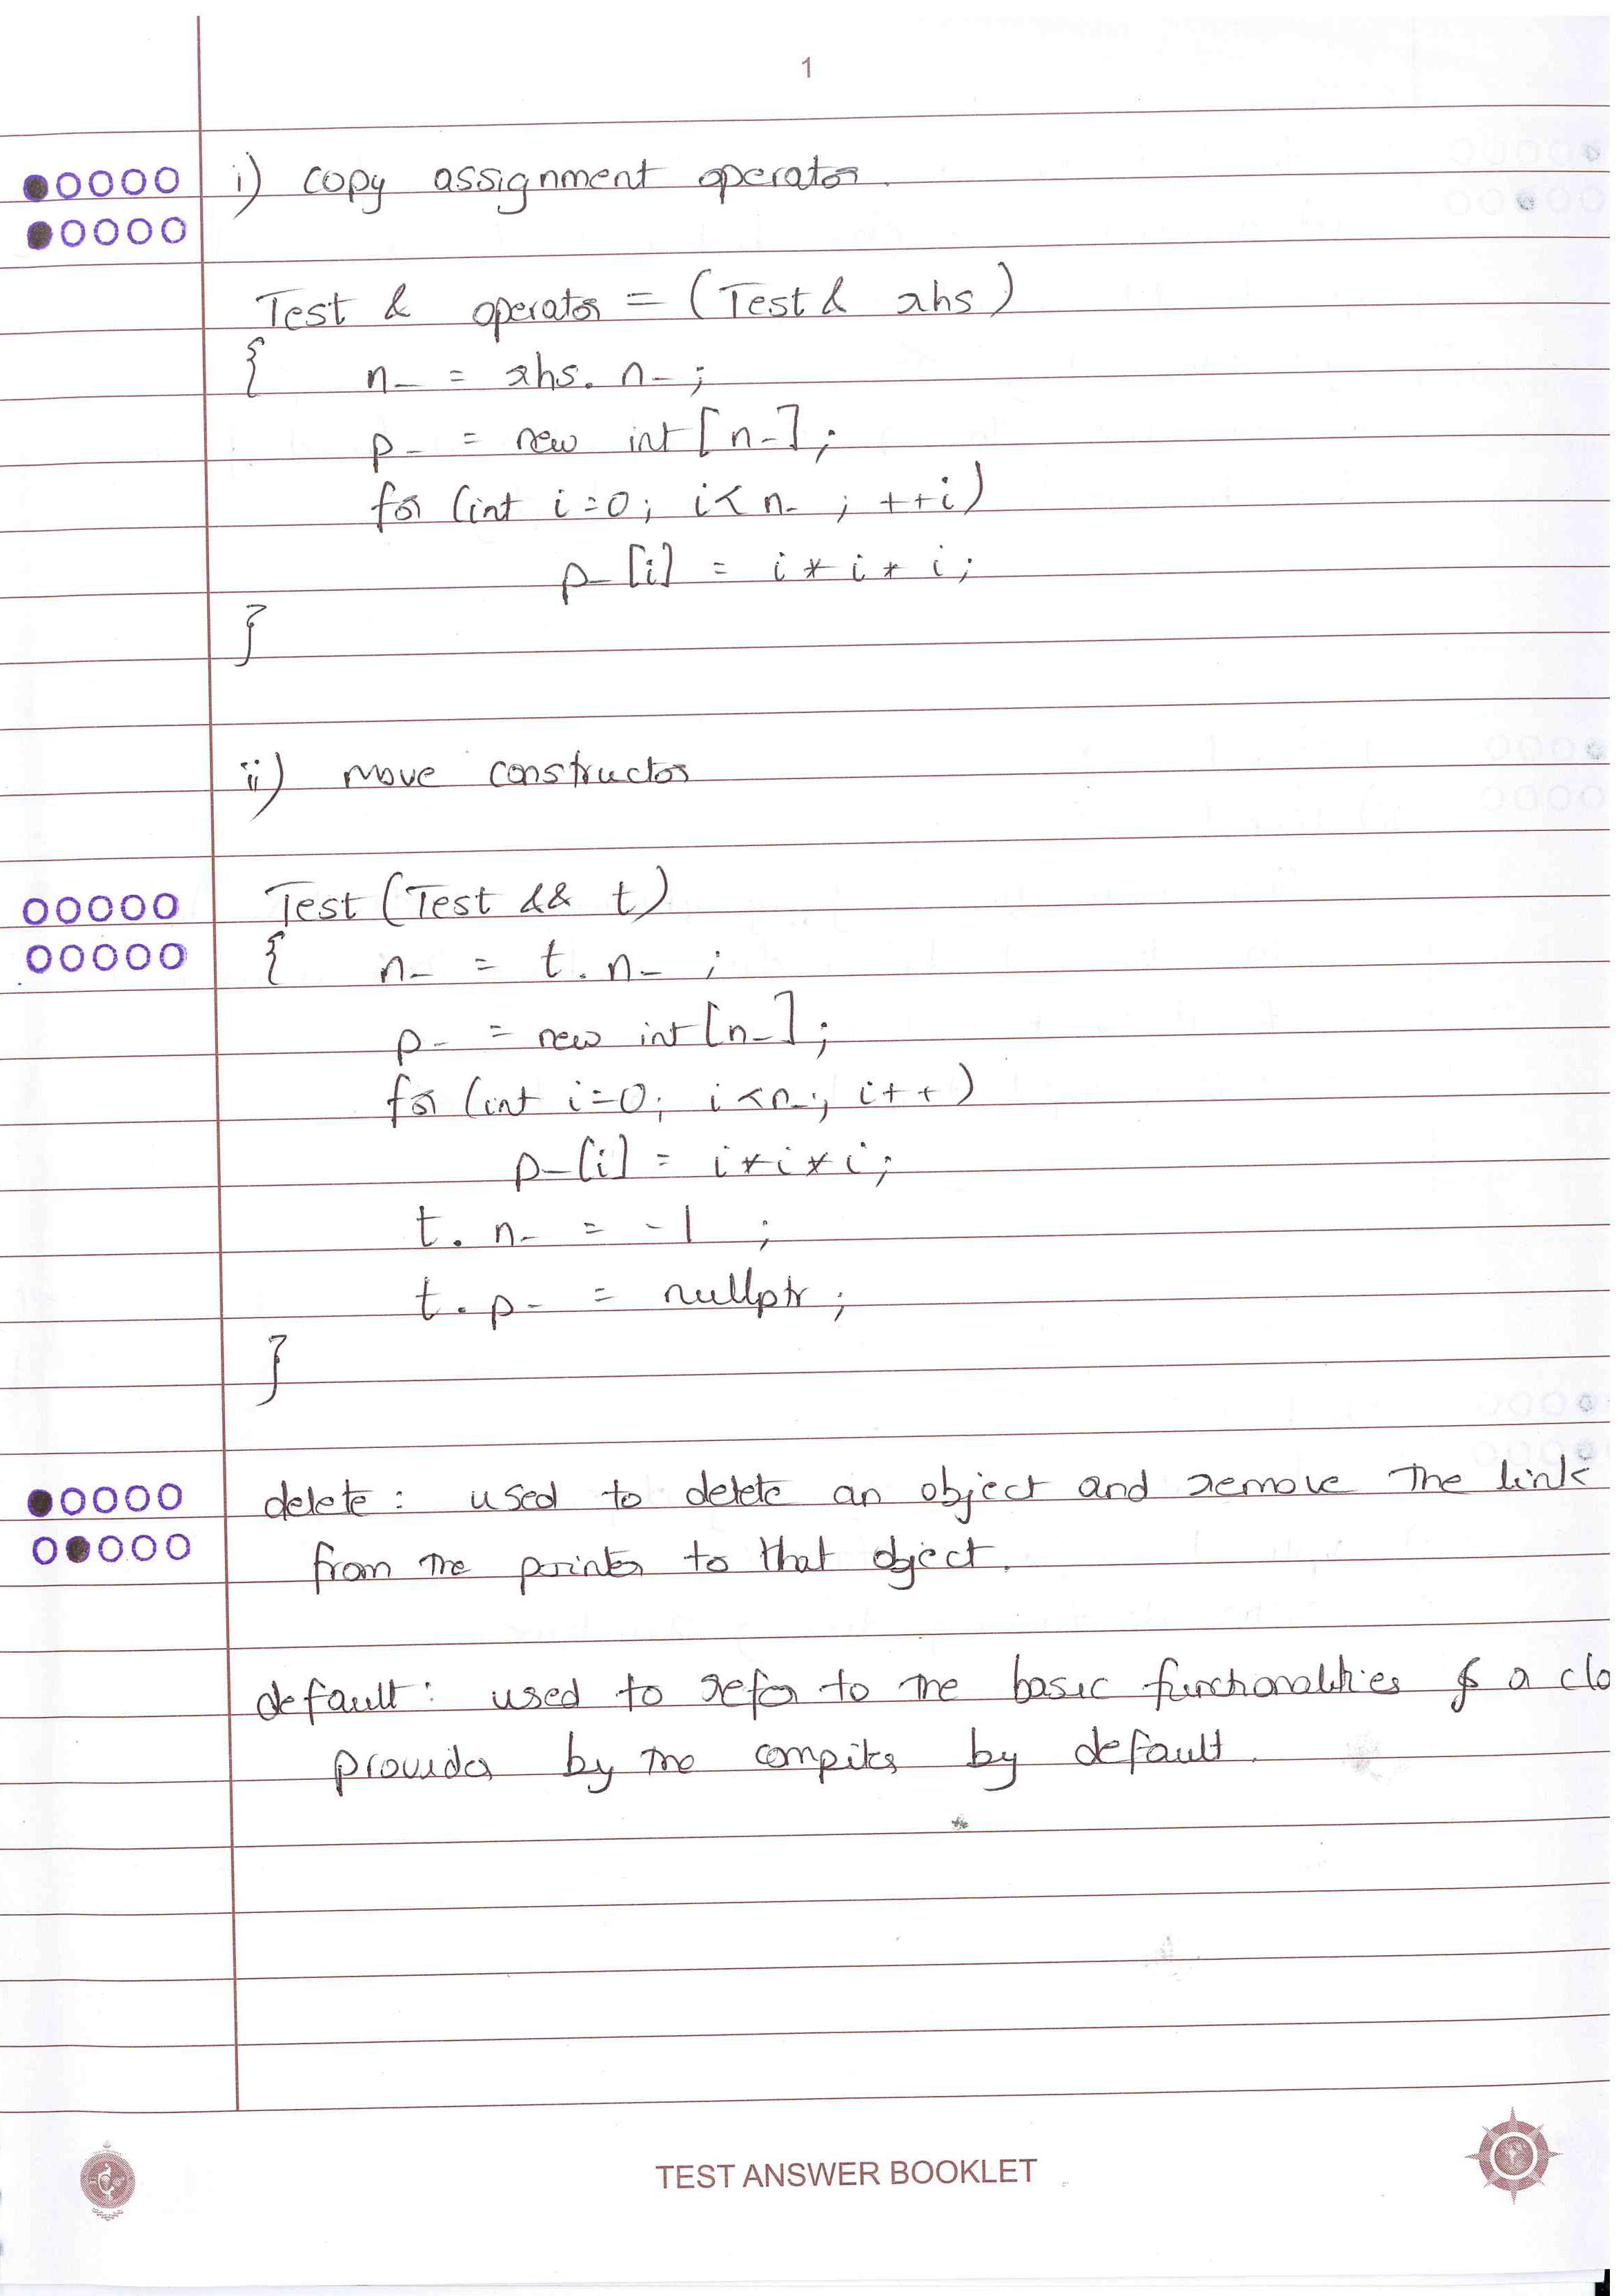 1
i) copy assignment operator.
Test & operator = (Test & rhs)
{ n_ = rhs. n_ ;
p_ = new int [n_] ;
for (int i=0; i< n_ ; ++i)
p_ [i] = i * i * i ;
}
ii) move constructor
Test (Test && t)
{ n_ = t. n_ ;
p_ = new int [n_] ;
for (int i=0; i<n_; i++)
p_[i] = i*i*i;
t. n_ = -1 ;
t. p_ = nullptr ;
}
delete : used to delete an object and remove the link
from the pointer to that object.
default : used to refer to the basic functionalities of a cla
provider by the compiler by default.
TEST ANSWER BOOKLET